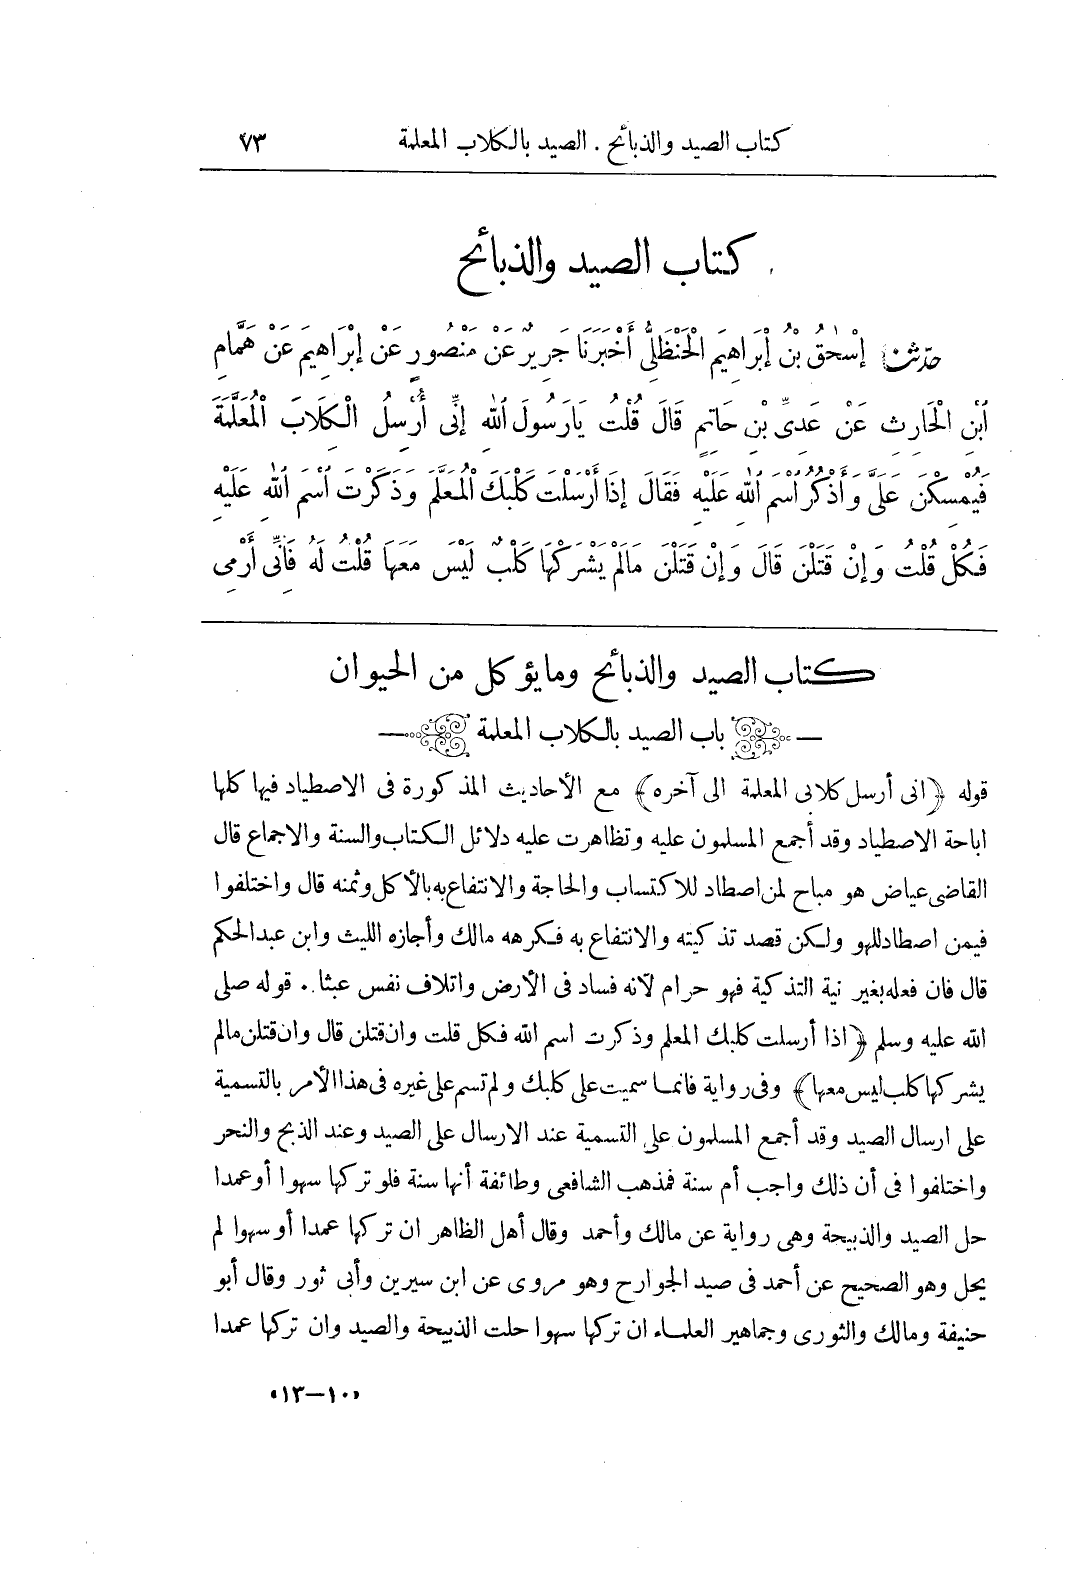 كتاب الصيد والذبائح . الصيد بالكلاب المعلمة ٧٣
كتاب الصيد والذبائح
حدّثنا إِسْحٰقُ بْنُ إِبْرَاهِيمَ الْحَنْظَلِيُّ أَخْبَرَنَا جَرِيرٌ عَنْ مَنْصُورٍ عَنْ إِبْرَاهِيمَ عَنْ هَمَّامِ
ٱبْنِ الْحَارِثِ عَنْ عَدِىِّ بْنِ حَاتِمٍ قَالَ قُلْتُ يَارَسُولَ ٱللهِ إِنِّى أُرْسِلُ الْكِلَابَ الْمُعَلَّمَةَ
فَيُمْسِكْنَ عَلَىَّ وَأَذْكُرُ ٱسْمَ ٱللهِ عَلَيْهِ فَقَالَ إِذَا أَرْسَلْتَ كَلْبَكَ الْمُعَلَّمَ وَذَكَرْتَ ٱسْمَ ٱللهِ عَلَيْهِ
فَكُلْ قُلْتُ وَإِنْ قَتَلْنَ قَالَ وَإِنْ قَتَلْنَ مَالَمْ يَشْرَكْهَا كَلْبٌ لَيْسَ مَعَهَا قُلْتُ لَهُ فَإِنِّى أَرْمِى
كتاب الصيد والذبائح ومايؤكل من الحيوان
باب الصيد بالكلاب المعلمة
قوله ﴿انى أرسل كلابى المعلمة الى آخره﴾ مع الأحاديث المذكورة فى الاصطياد فيها كلها
اباحة الاصطياد وقد أجمع المسلمون عليه وتظاهرت عليه دلائل الكتاب والسنة والاجماع قال
القاضى عياض هو مباح لمن اصطاد للاكتساب والحاجة والانتفاع به بالأكل وثمنه قال واختلفوا
فيمن اصطاد للهو ولكن قصد تذكيته والانتفاع به فكرهه مالك وأجازه الليث وابن عبد الحكم
قال فان فعله بغير نية التذكية فهو حرام لأنه فساد فى الأرض واتلاف نفس عبثا . قوله صلى
الله عليه وسلم ﴿اذا أرسلت كلبك المعلم وذكرت اسم الله فكل قلت وان قتلن قال وان قتلن مالم
يشركها كلب ليس معها﴾ وفى رواية فانما سميت على كلبك ولم تسم على غيره فى هذا الأمر بالتسمية
على ارسال الصيد وقد أجمع المسلمون على التسمية عند الارسال على الصيد وعند الذبح والنحر
واختلفوا فى أن ذلك واجب أم سنة فمذهب الشافعى وطائفة أنها سنة فلو تركها سهوا أو عمدا
حل الصيد والذبيحة وهى رواية عن مالك وأحمد وقال أهل الظاهر ان تركها عمدا أو سهوا لم
يحل وهو الصحيح عن أحمد فى صيد الجوارح وهو مروى عن ابن سيرين وأبى ثور وقال أبو
حنيفة ومالك والثورى وجماهير العلماء ان تركها سهوا حلت الذبيحة والصيد وان تركها عمدا
«١٠-١٣»